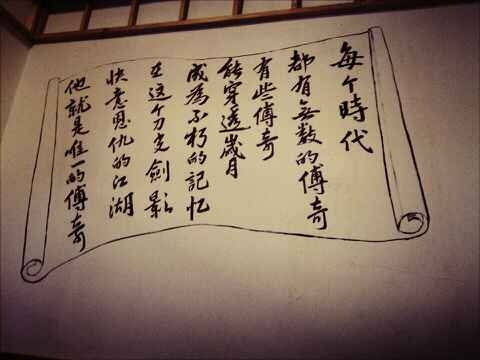 每个時代
都有无数的傳奇
有些傳奇
能穿透歲月
成為不朽的記忆
在这个刀光劍影
快意恩仇的江湖
他就是唯一的傳奇